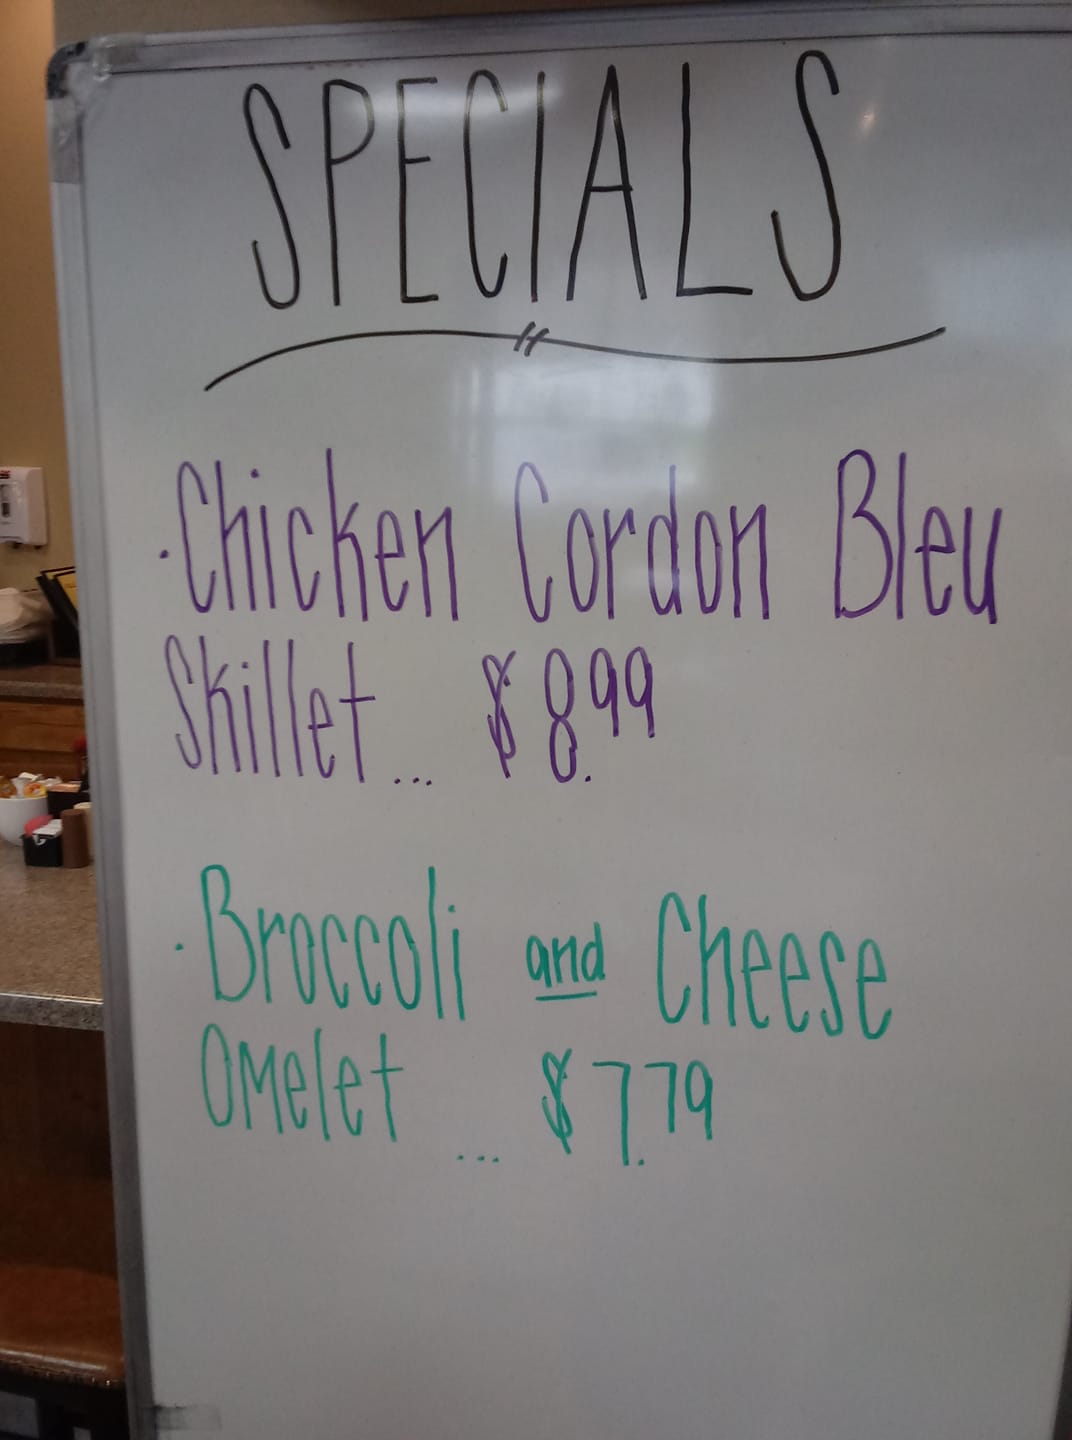 SPECIALS
·Chicken Cordon Bleu
Skillet... $8.99
·Broccoli and Cheese
Omelet ... $7.79